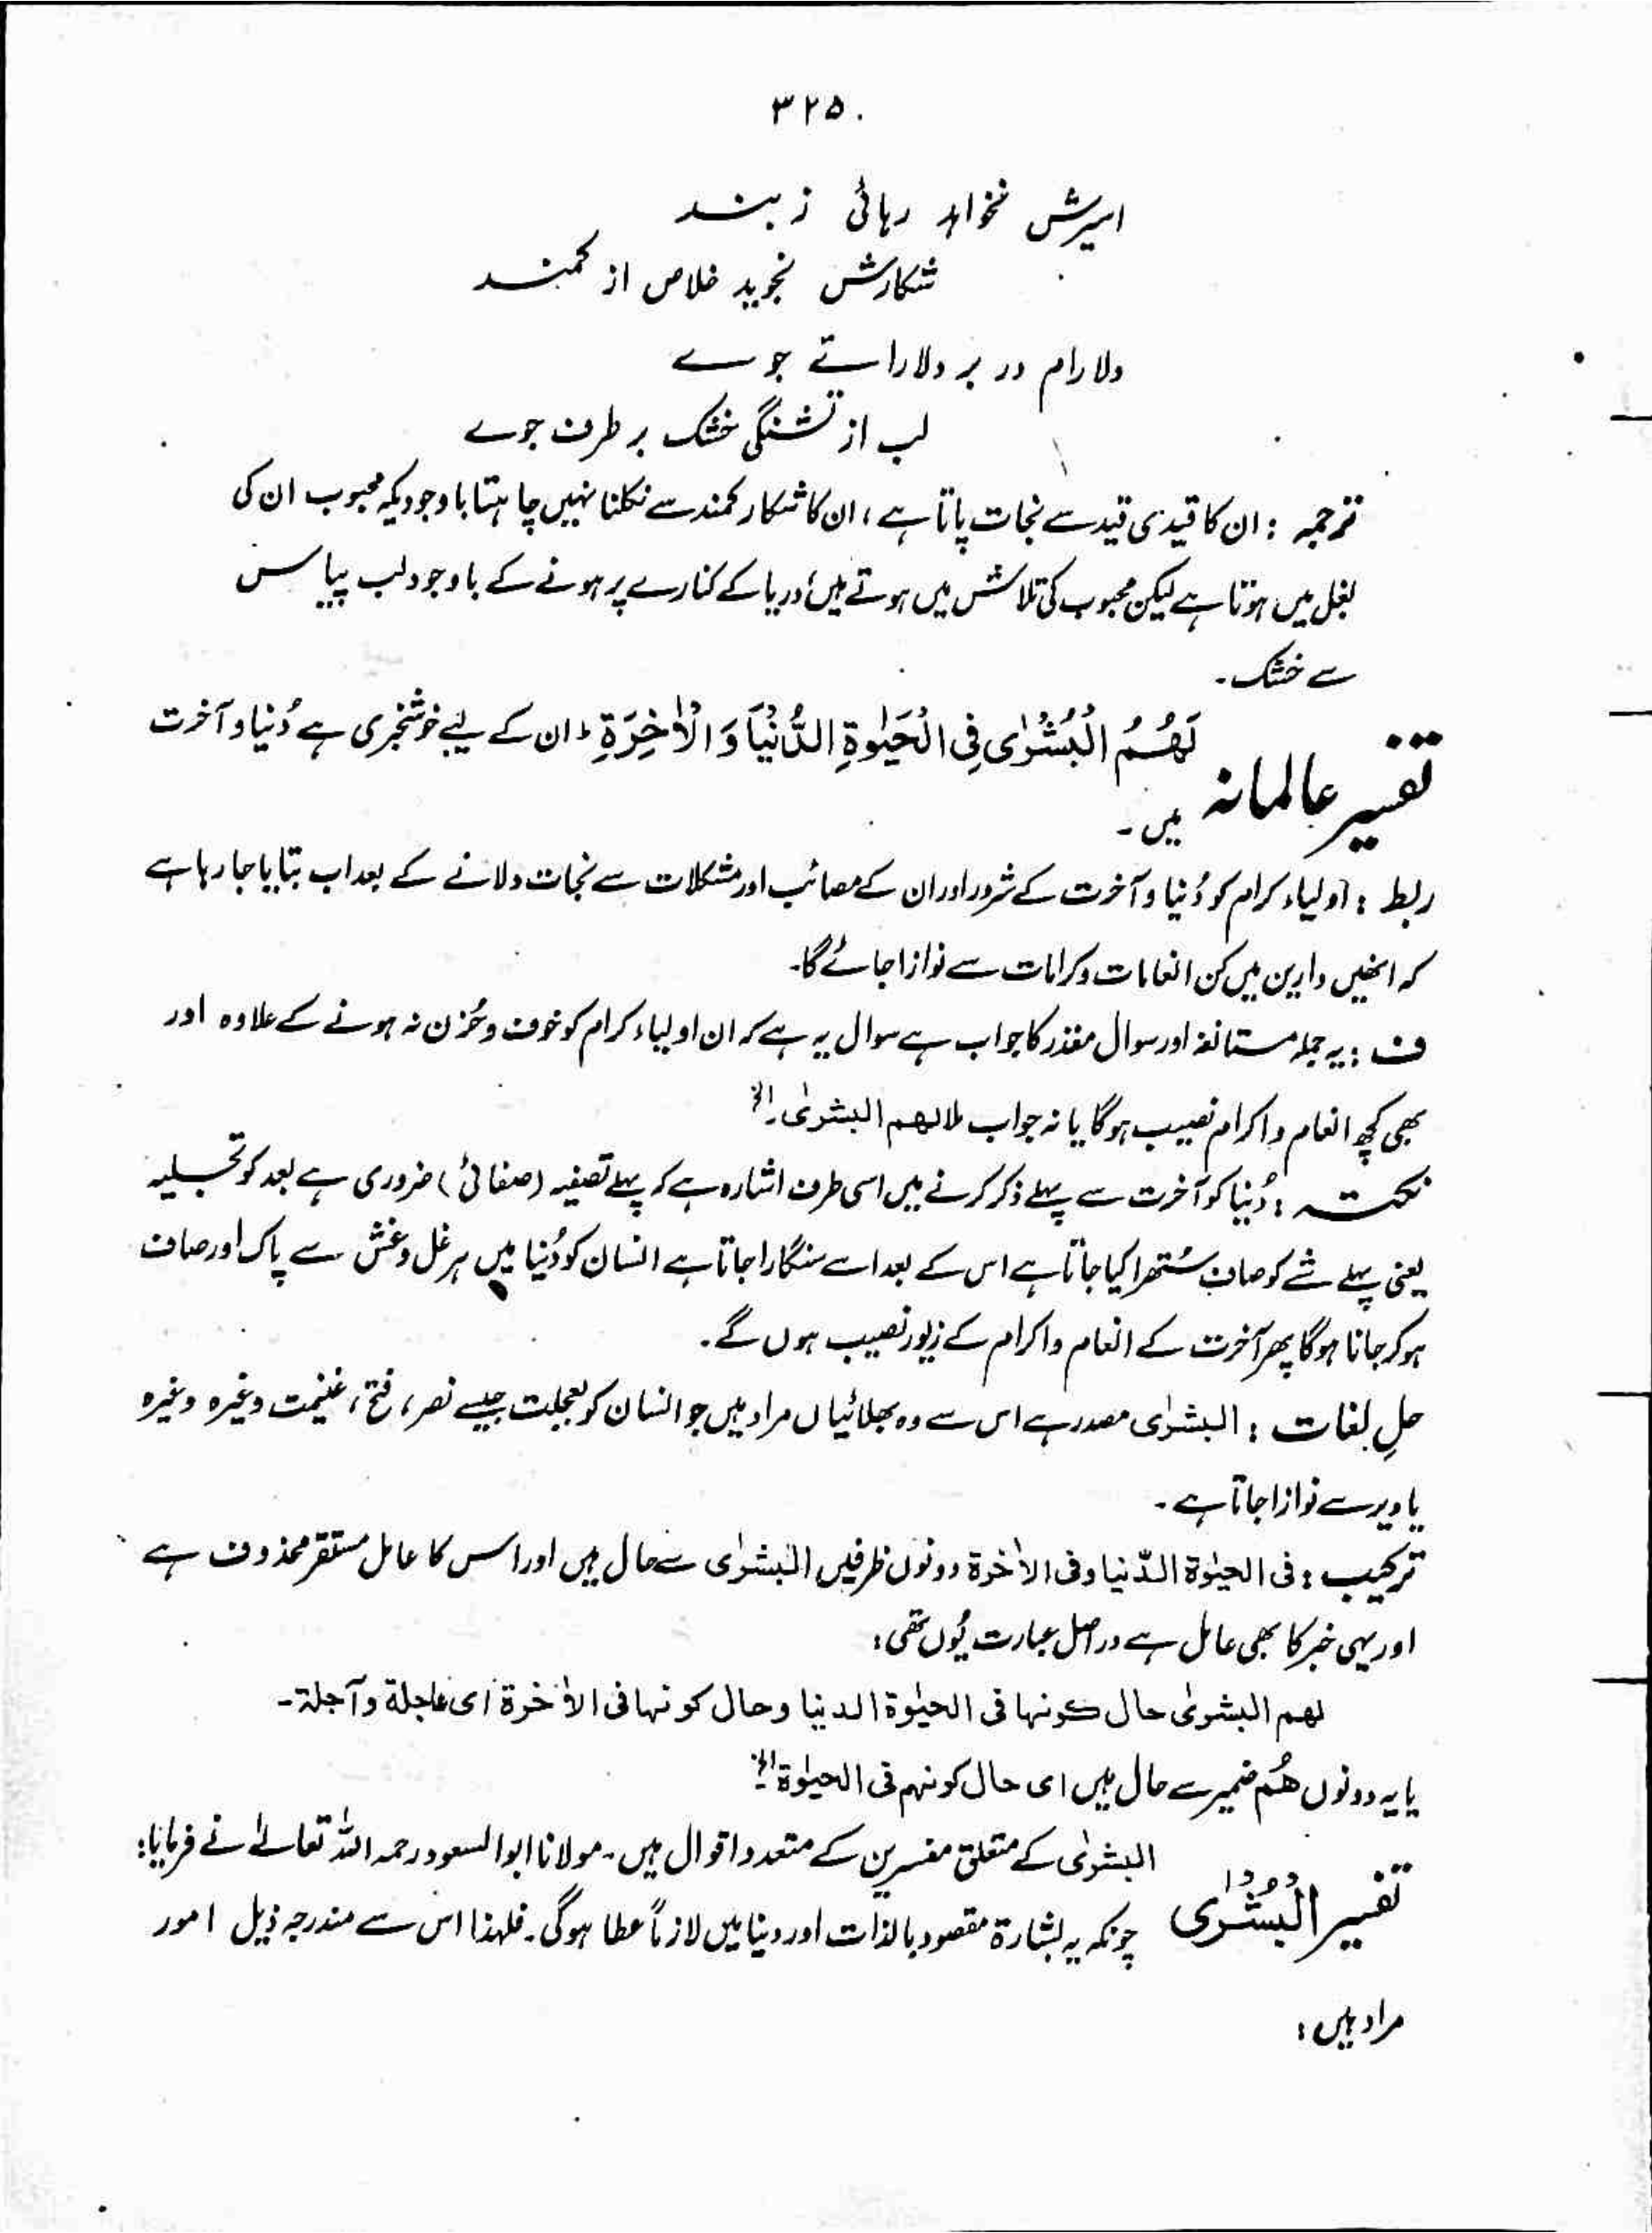 ۳۲۵
اسیرش نخواہد رہائی ز بند
شکارش نجوید خلاص از کمند
دلارام در بر دلارائے جوے
لب از تشنگی خشک بر طرف جوے
ترجمہ : ان کا قیدی قید سے نجات پاتا ہے ، ان کا شکار کمند سے نکلنا نہیں چاہتا باوجودیکہ محبوب ان کی
بغل میں ہوتا ہے لیکن محبوب کی تلاش میں ہوتے ہیں ، دریا کے کنارے پر ہونے کے باوجود لب پیاس
سے خشک ۔
تفسیر عالمانہ لَهُمُ الْبُشْرٰى فِى الْحَيٰوةِ الدُّنْيَا وَ الْاٰخِرَةِ ؕ ان کے لیے خوشخبری ہے دُنیا و آخرت
میں ۔
ربط : اولیاء کرام کو دُنیا و آخرت کے شرور اور ان کے مصائب اور مشکلات سے نجات دلانے کے بعد اب بتایا جا رہا ہے
کہ انھیں دارین میں کن انعامات و کرامات سے نوازا جائے گا۔
ف : یہ جملہ مستانفہ اور سوال مقدر کا جواب ہے سوال یہ ہے کہ ان اولیاء کرام کو خوف و حُزن نہ ہونے کے علاوہ اور
بھی کچھ انعام و اکرام نصیب ہوگا یا نہ جواب ملا لهم البشرٰى ۔ الخ
نکتہ : دُنیا کو آخرت سے پہلے ذکر کرنے میں اسی طرف اشارہ ہے کہ پہلے تصفیہ (صفائی) ضروری ہے بعد کو تحلیہ
یعنی پہلے شے کو صاف سُتھرا کیا جاتا ہے اس کے بعد اسے سنگارا جاتا ہے انسان کو دُنیا میں ہر غل و غش سے پاک اور صاف
ہو کر جانا ہوگا پھر آخرت کے انعام و اکرام کے زیور نصیب ہوں گے ۔
حلِ لغات : البشرٰى مصدر ہے اس سے وہ بھلائیاں مراد ہیں جو انسان کو بعجلت جیسے نصر ، فتح ، غنیمت وغیرہ وغیرہ
یا دیر سے نوازا جاتا ہے ۔
ترکیب : فى الحيٰوة الدّنيا و فى الاٰخرة دونوں ظرفیں البشرٰى سے حال ہیں اور اس کا عامل مستقر محذوف ہے
اور یہی خبر کا بھی عامل ہے در اصل عبارت یُوں تھی :
لهم البشرٰى حال كونها فى الحيٰوة الدنيا و حال كونها فى الاٰخرة اى عاجلة و آجلة ۔
یا یہ دونوں هُم ضمیر سے حال ہیں اى حال كونهم فى الحيٰوة الخ
تفسیر الْبُشْرٰى البشرٰى کے متعلق مفسرین کے متعدد اقوال ہیں ۔ مولانا ابو السعود رحمہ اللہ تعالےٰ نے فرمایا :
چونکہ یہ بشارۃ مقصود بالذات اور دنیا میں لازماً عطا ہوگی ۔ فلہذا اس سے مندرجہ ذیل امور
مراد ہیں :